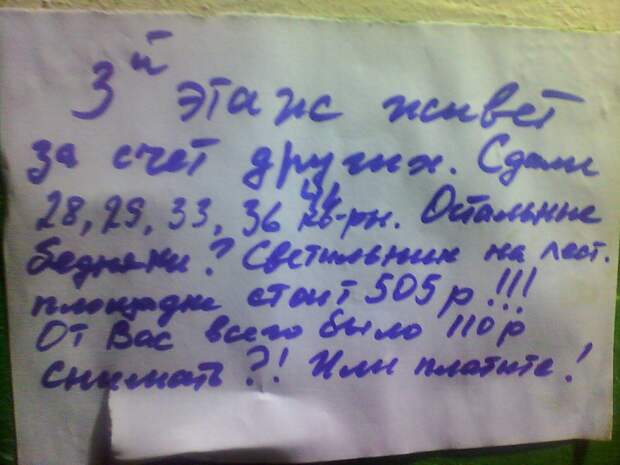 3й этаж живет
за счет других. Сдали
28, 29, 33, 36 41 кв-ры. Остальные
бедняки? Светильник на лест.
площадке стоит 505 р!!!
От Вас всего было 110 р
снимать?! Или платите!